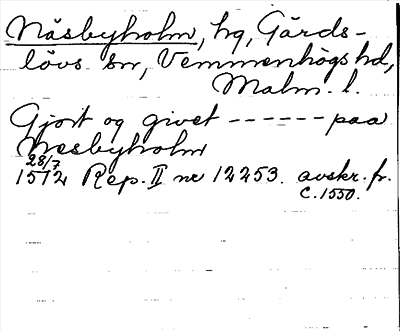 Näsbyholm, hg, Gärds-
lövs sn, Vemmenhögs hd,
Malm. l.
Gjort og givet ------ paa
Nesbyholm
28/7
1512 Rep. II nr 12253. avskr. fr.
c. 1550.